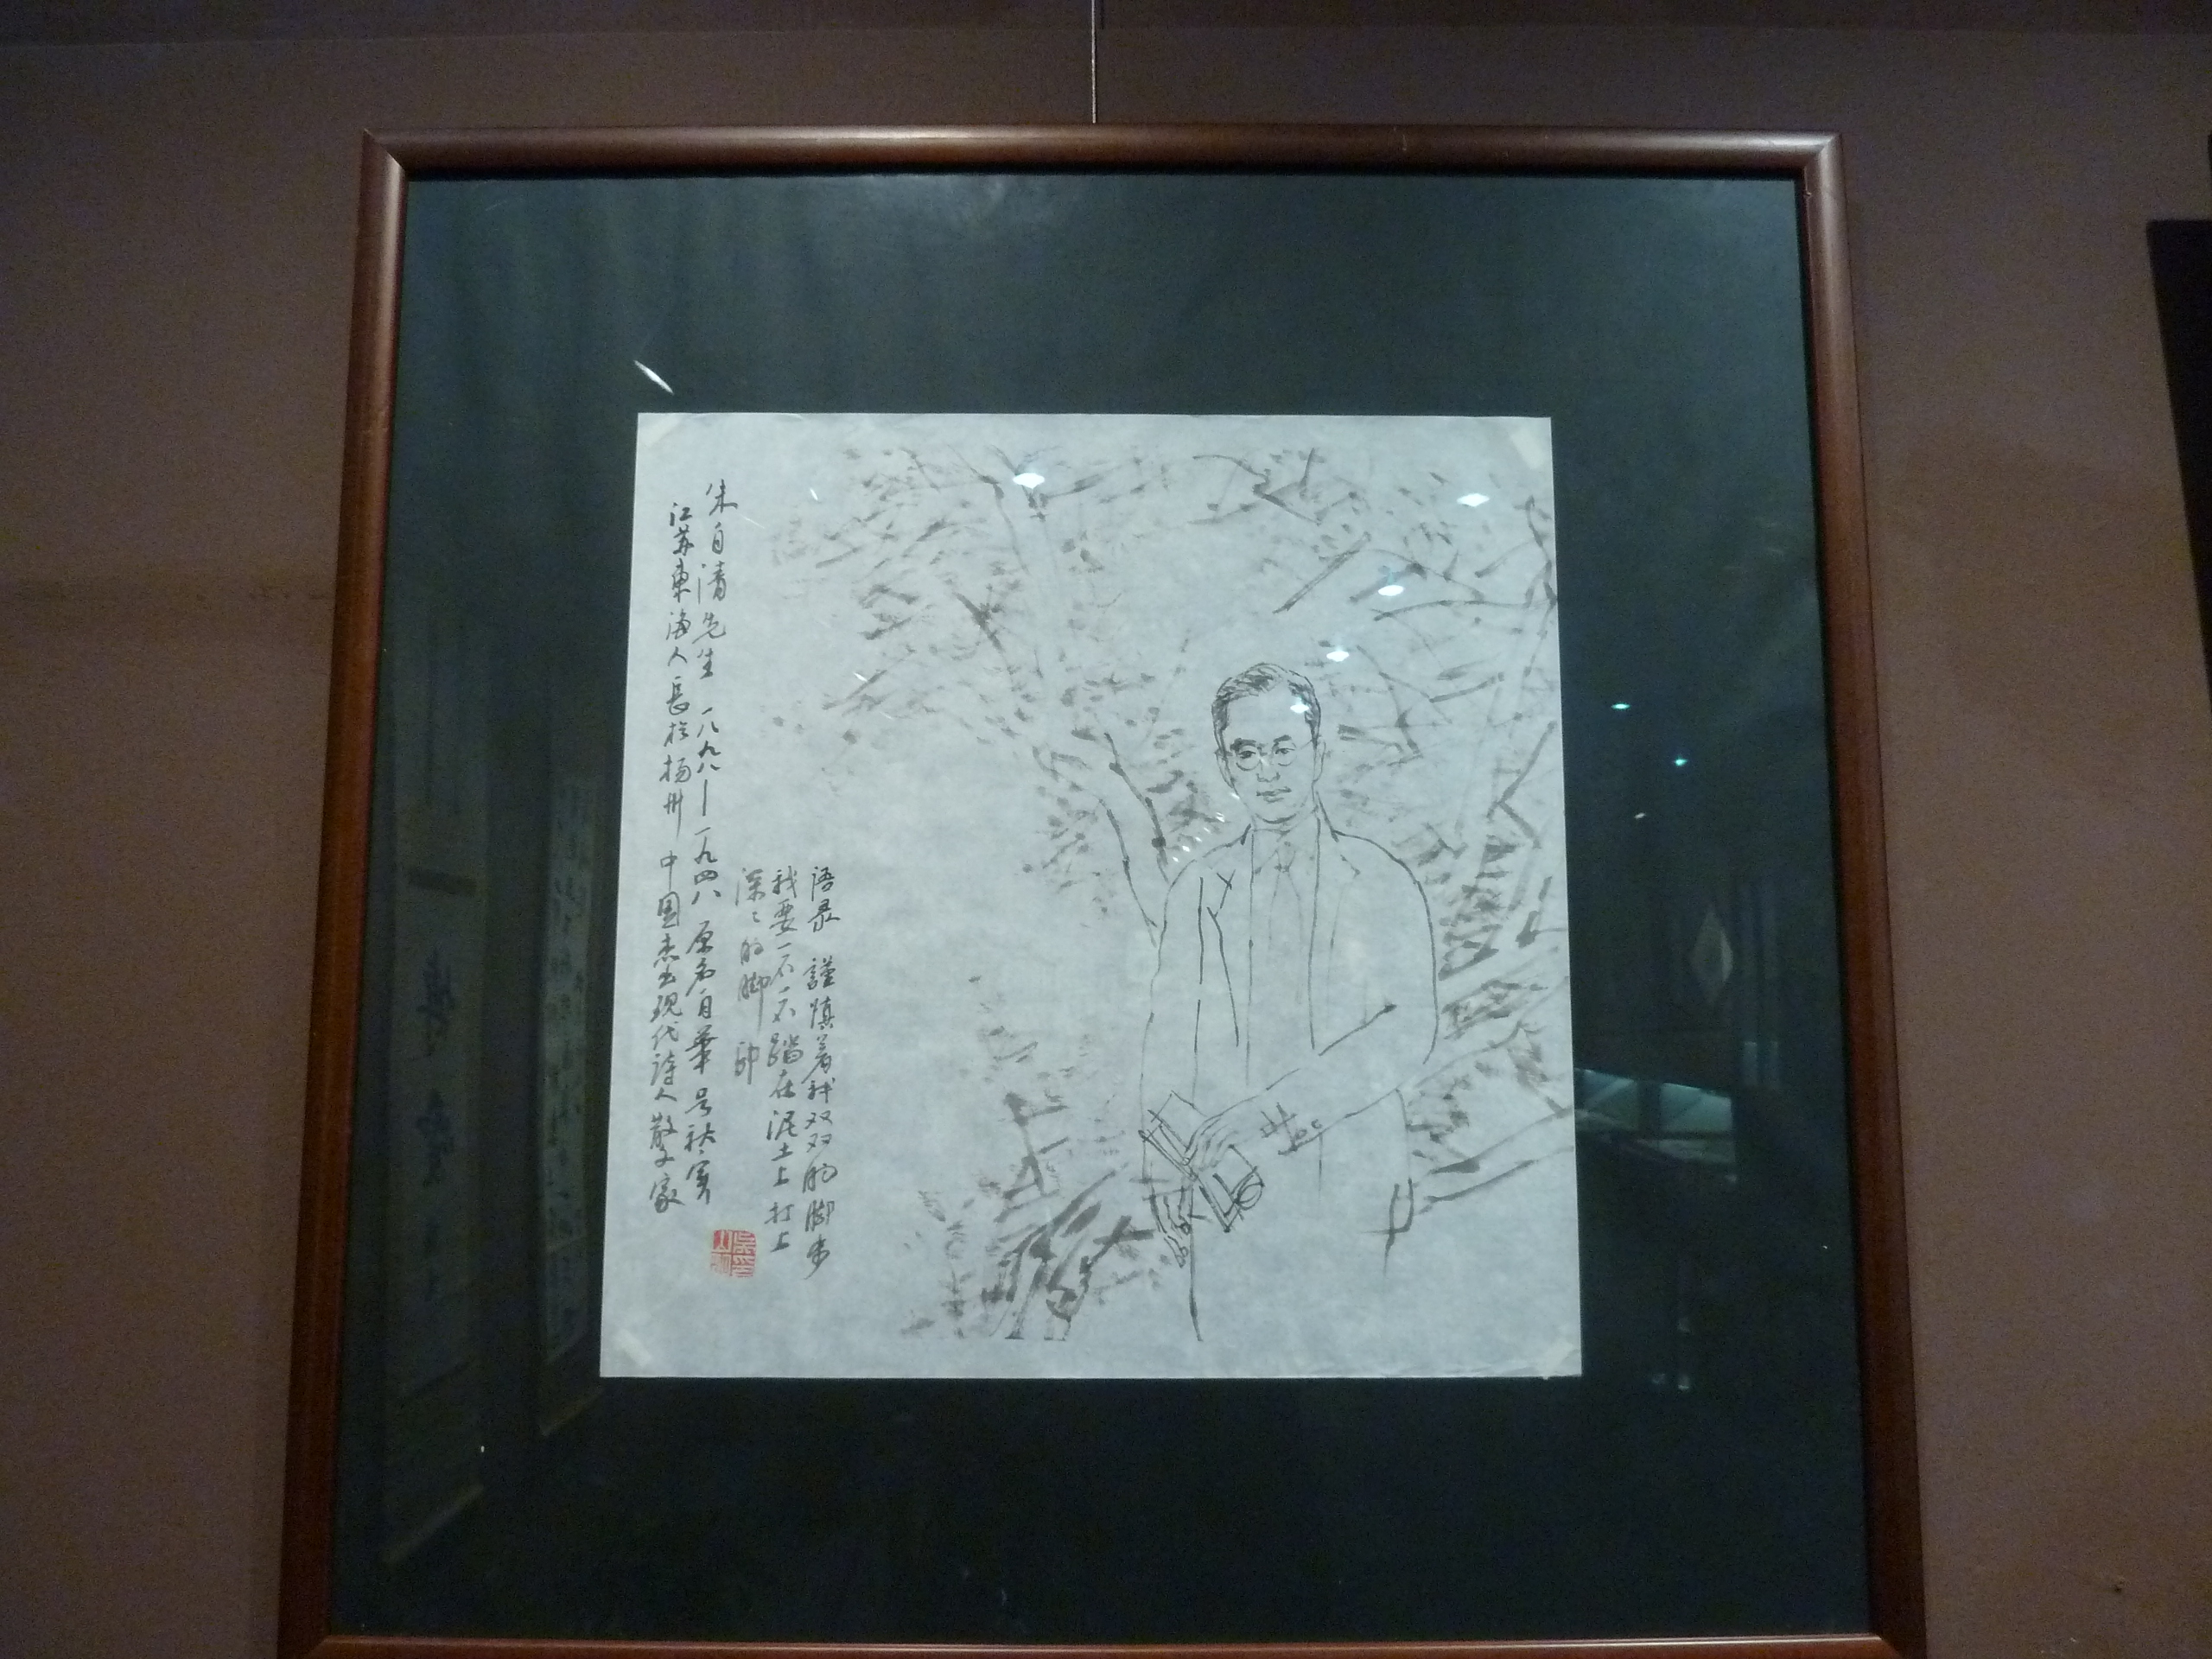 语录 謹慎着我双双的脚步
我要一步一步踏在泥土上打上
深〻的脚印
朱自清先生 一八九八—一九四八 原名自華 号秋實
江苏東海人長於扬州 中国杰出现代诗人散文家